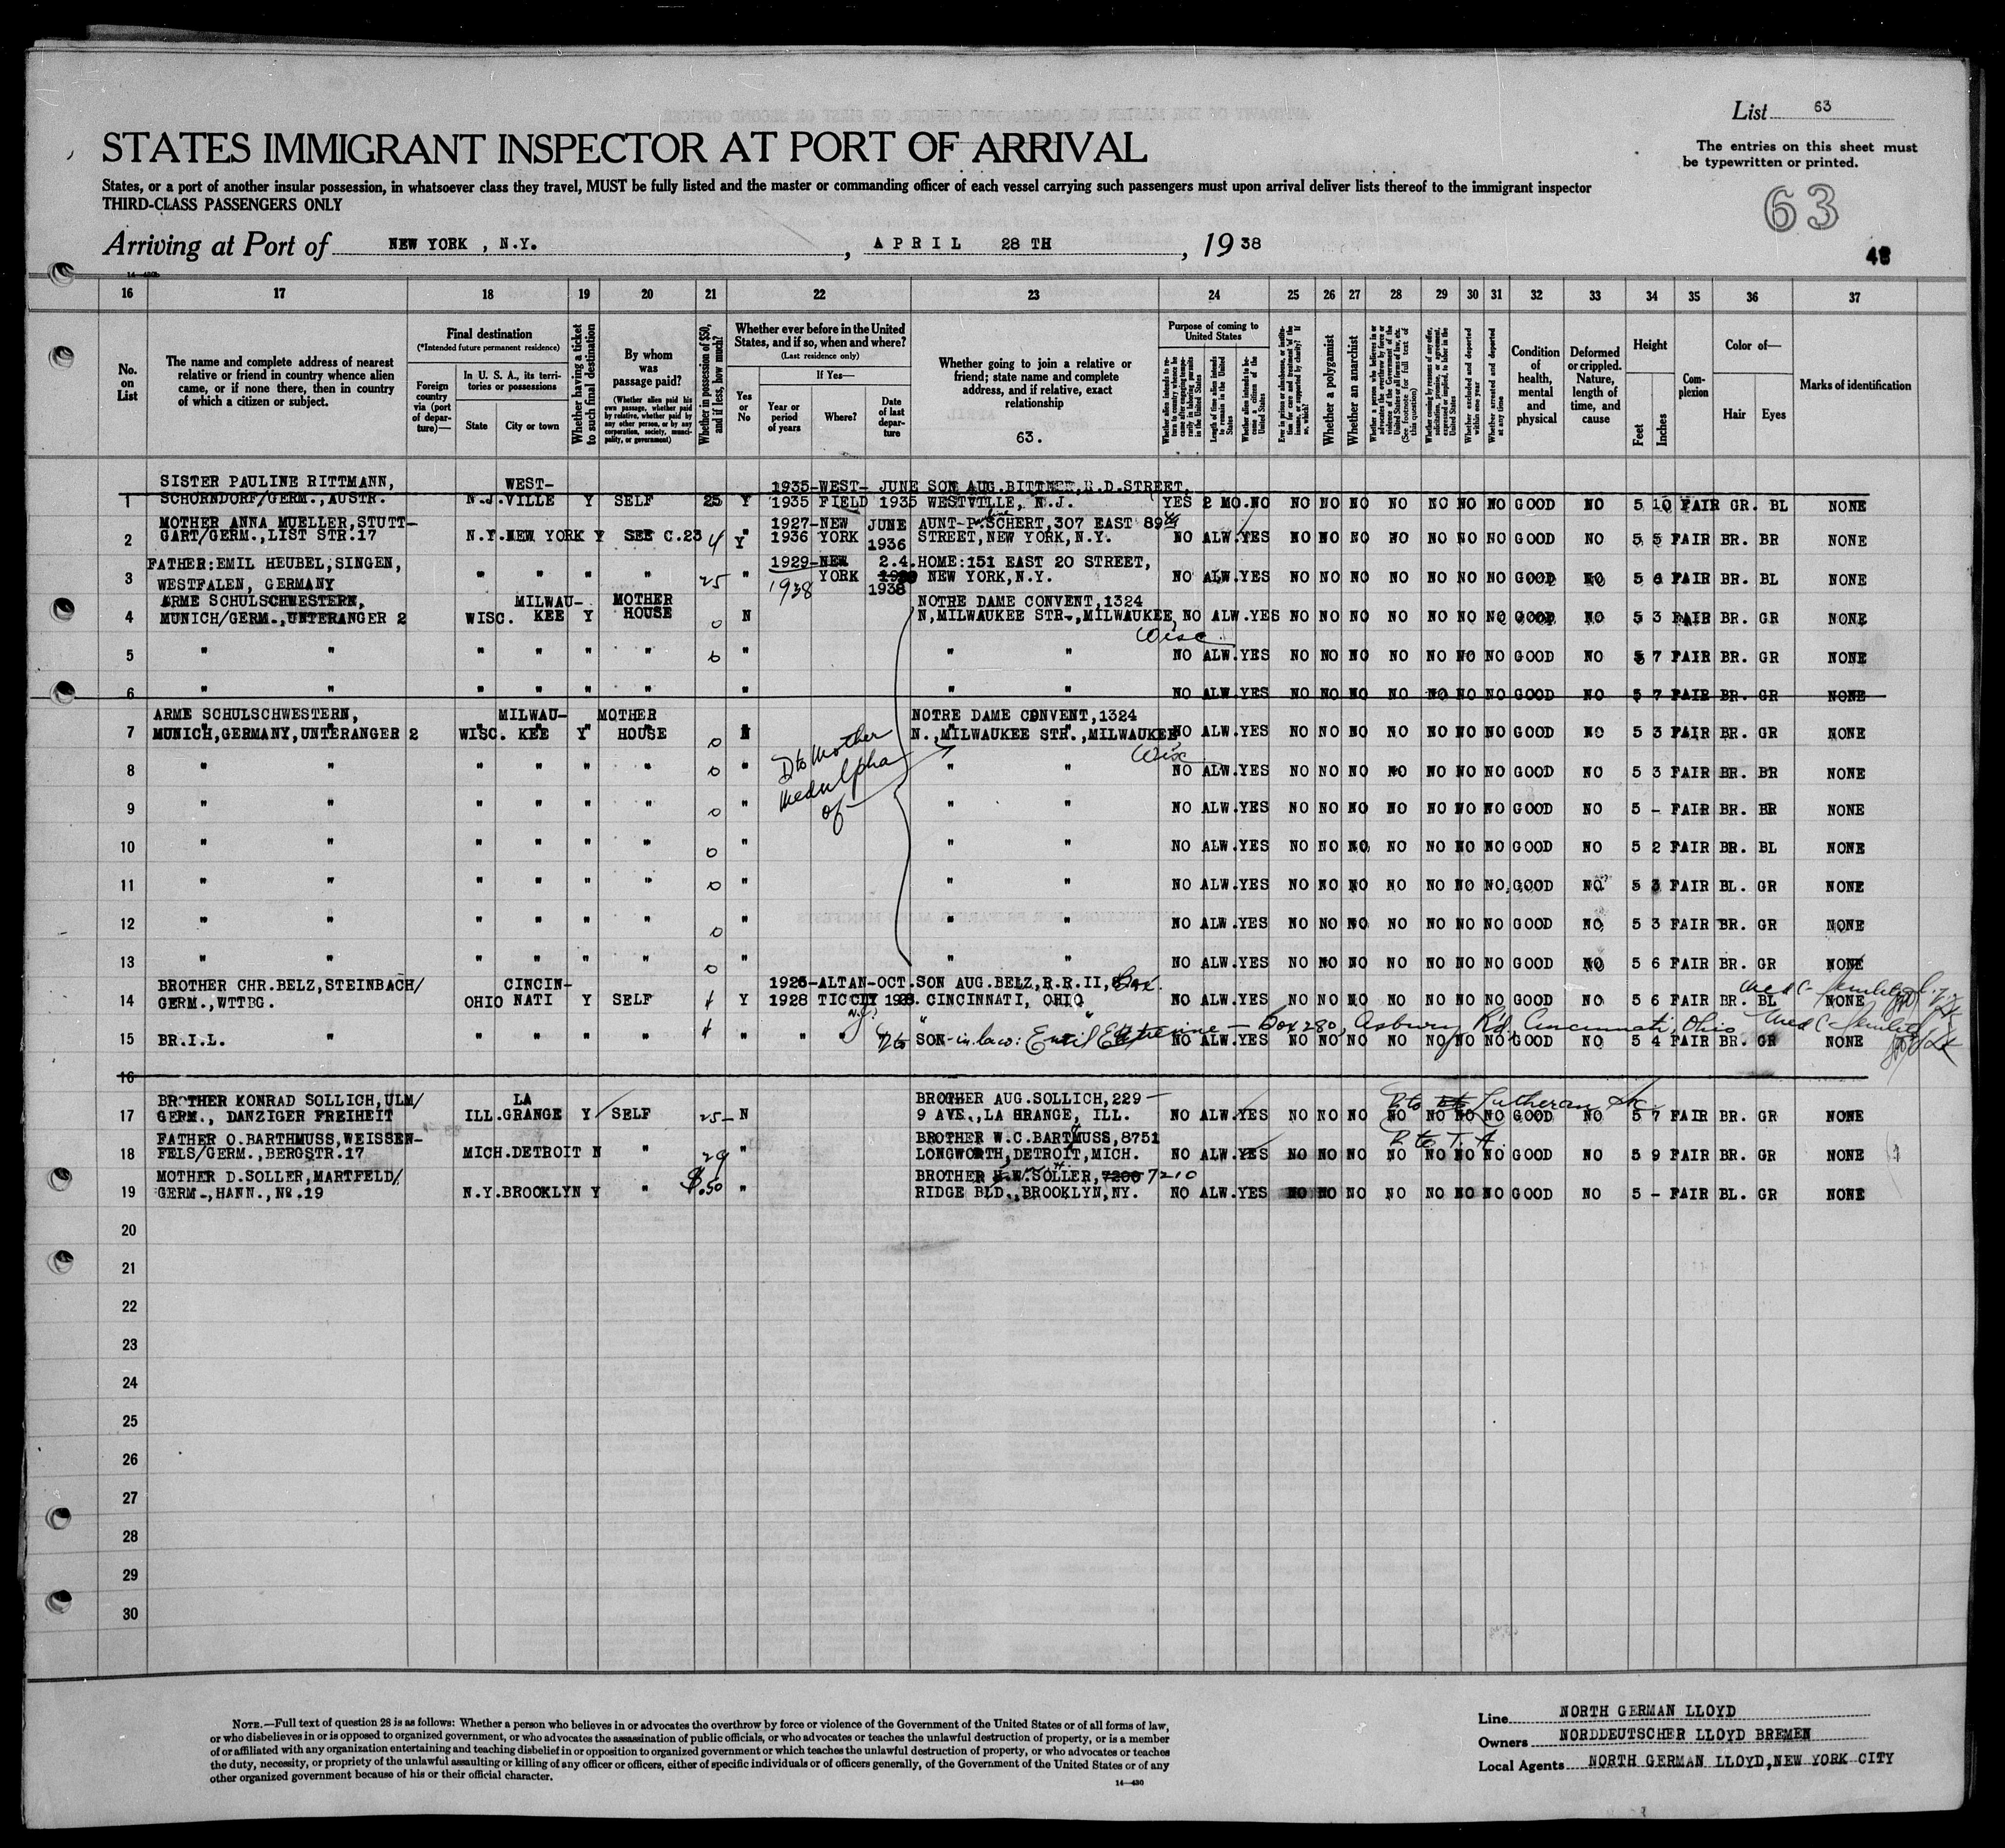 List 63
STATES IMMIGRANT INSPECTOR AT PORT OF ARRIVAL
The entries on this sheet must
be typewritten or printed.
States, or a port of another insular possession, in whatsoever class they travel, MUST be fully listed and the master or commanding officer of each vessel carrying such passengers must upon arrival deliver lists thereof to the immigrant inspector
THIRD-CLASS PASSENGERS ONLY
63
Arriving at Port of NEW YORK , N.Y. , APRIL 28 TH , 19 38
48
16 17 18 19 20 21 22 23 24 25 26 27 28 29 30 31 32 33 34 35 36 37
No. on List
The name and complete address of nearest relative or friend in country whence alien came, or if none there, then in country of which a citizen or subject.
Final destination
(*Intended future permanent residence)
Foreign country via (port of departure)—
In U. S. A., its territories or possessions
State
City or town
Whether having a ticket to such final destination
By whom was passage paid?
(Whether alien paid his own passage, whether paid by relative, whether paid by any other person, or by any corporation, society, municipality, or government)
Whether in possession of $50, and if less, how much?
Whether ever before in the United States, and if so, when and where?
(Last residence only)
Yes or No
If Yes—
Year or period of years
Where?
Date of last departure
Whether going to join a relative or friend; state name and complete address, and if relative, exact relationship
63.
Purpose of coming to United States
Whether alien intends to return to country whence he came after engaging temporarily in laboring pursuits in the United States
Length of time alien intends to remain in the United States
Whether alien intends to become a citizen of the United States
Ever in prison or almshouse, or institution for care and treatment of the insane, or supported by charity? If so, which?
Whether a polygamist
Whether an anarchist
Whether a person who believes in or advocates the overthrow by force or violence of the Government of the United States or all forms of law, etc. (See footnote for full text of this question)
Whether coming by reason of any offer, solicitation, promise, or agreement, expressed or implied, to labor in the United States
Whether excluded and deported within one year
Whether arrested and deported at any time
Condition of health, mental and physical
Deformed or crippled. Nature, length of time, and cause
Height
Feet
Inches
Complexion
Color of—
Hair
Eyes
Marks of identification
SISTER PAULINE RITTMANN, WEST- 1935-WEST- JUNE SON AUG. BITTNER, R.D. STREET,
1 SCHORNDORF/GERM.,AUSTR. N.J. VILLE Y SELF 25 Y 1935 FIELD 1935 WESTVILLE, N.J. YES 2 MO. NO NO NO NO NO NO NO NO GOOD NO 5 10 FAIR GR. BL NONE
MOTHER ANNA MUELLER, STUTT- 1927-NEW JUNE AUNT-P. SCHERT, 307 EAST 89
2 GART/GERM.,LIST STR.17 N.Y. NEW YORK Y SEE C.23 4 Y 1936 YORK 1936 STREET, NEW YORK, N.Y. NO ALW. YES NO NO NO NO NO NO NO GOOD NO 5 5 FAIR BR. BR NONE
FATHER: EMIL HEUBEL, SINGEN, 1929-NEW 2.4. HOME: 151 EAST 20 STREET,
3 WESTFALEN, GERMANY " " " " 25 " 1938 YORK 1938 NEW YORK, N.Y. NO ALW. YES NO NO NO NO NO NO NO GOOD NO 5 6 FAIR BR. BL NONE
ARME SCHULSCHWESTERN, MILWAU- MOTHER NOTRE DAME CONVENT, 1324
4 MUNICH/GERM.,UNTERANGER 2 WISC. KEE Y HOUSE 0 N N, MILWAUKEE STR., MILWAUKEE, NO ALW. YES NO NO NO NO NO NO NO GOOD NO 5 3 FAIR BR. GR NONE
Wisc
5 " " " " " " 0 " " " NO ALW. YES NO NO NO NO NO NO NO GOOD NO 5 7 FAIR BR. GR NONE
6 " " " " " " " " " NO ALW. YES NO NO NO NO NO NO NO GOOD NO 5 7 FAIR BR. GR NONE
ARME SCHULSCHWESTERN, MILWAU- MOTHER NOTRE DAME CONVENT, 1324
7 MUNICH, GERMANY, UNTERANGER 2 WISC. KEE Y HOUSE 0 N N., MILWAUKEE STR., MILWAUKEE NO ALW. YES NO NO NO NO NO NO NO GOOD NO 5 3 FAIR BR. GR NONE
D to Mother
of
Wisc
8 " " " " " " 0 " " " NO ALW. YES NO NO NO NO NO NO NO GOOD NO 5 3 FAIR BR. BR NONE
9 " " " " " " 0 " " " NO ALW. YES NO NO NO NO NO NO NO GOOD NO 5 - FAIR BR. BR NONE
10 " " " " " " 0 " " " NO ALW. YES NO NO NO NO NO NO NO GOOD NO 5 2 FAIR BR. BL NONE
11 " " " " " " 0 " " " NO ALW. YES NO NO NO NO NO NO NO GOOD NO 5 3 FAIR BL. GR NONE
12 " " " " " " 0 " " " NO ALW. YES NO NO NO NO NO NO NO GOOD NO 5 3 FAIR BR. GR NONE
13 " " " " " " 0 " " " NO ALW. YES NO NO NO NO NO NO NO GOOD NO 5 6 FAIR BR. GR NONE
BROTHER CHR. BELZ, STEINBACH/ CINCIN- 1925-ALTAN- OCT. SON AUG. BELZ, R.R. II, Box.
14 GERM., WTTBG. OHIO NATI Y SELF Y 1928 TICCIY 1928. CINCINNATI, OHIO NO ALW. YES NO NO NO NO NO NO NO GOOD NO 5 6 FAIR BR. BL NONE
N.J.
15 BR.I.L. " " " " " " " D to SON-in-law: Box 280, Asbury Rd, Cincinnati, Ohio NO ALW. YES NO NO NO NO NO NO NO GOOD NO 5 4 FAIR BR. GR NONE
16
BROTHER KONRAD SOLLICH, ULM/ LA BROTHER AUG. SOLLICH, 229 - D to Lutheran
17 GERM., DANZIGER FREIHEIT ILL. GRANGE Y SELF 25 - N 9 AVE., LA GRANGE, ILL. NO ALW. YES NO NO NO NO NO NO NO GOOD NO 5 7 FAIR BR. GR NONE
FATHER O. BARTHMUSS, WEISSEN- BROTHER W.C. BARTMUSS, 8751 D to T.A.
18 FELS/GERM., BERGSTR.17 MICH. DETROIT N " 29 " LONGWORTH, DETROIT, MICH. NO ALW. YES NO NO NO NO NO NO NO GOOD NO 5 9 FAIR BR. GR NONE
MOTHER D. SOLLER, MARTFELD/ BROTHER H.W. SOLLER, 7200 7210
19 GERM., HANN., No.19 N.Y. BROOKLYN Y " $.50 " RIDGE BLD., BROOKLYN, NY. NO ALW. YES NO NO NO NO NO NO NO GOOD NO 5 - FAIR BL. GR NONE
20
21
22
23
24
25
26
27
28
29
30
NOTE.—Full text of question 28 is as follows: Whether a person who believes in or advocates the overthrow by force or violence of the Government of the United States or of all forms of law,
or who disbelieves in or is opposed to organized government, or who advocates the assassination of public officials, or who advocates or teaches the unlawful destruction of property, or is a member
of or affiliated with any organization entertaining and teaching disbelief in or opposition to organized government or which teaches the unlawful destruction of property, or who advocates or teaches
the duty, necessity, or propriety of the unlawful assaulting or killing of any officer or officers, either of specific individuals or of officers generally, of the Government of the United States or of any
other organized government because of his or their official character.
14—430
Line NORTH GERMAN LLOYD
Owners NORDDEUTSCHER LLOYD BREMEN
Local Agents NORTH GERMAN LLOYD, NEW YORK CITY